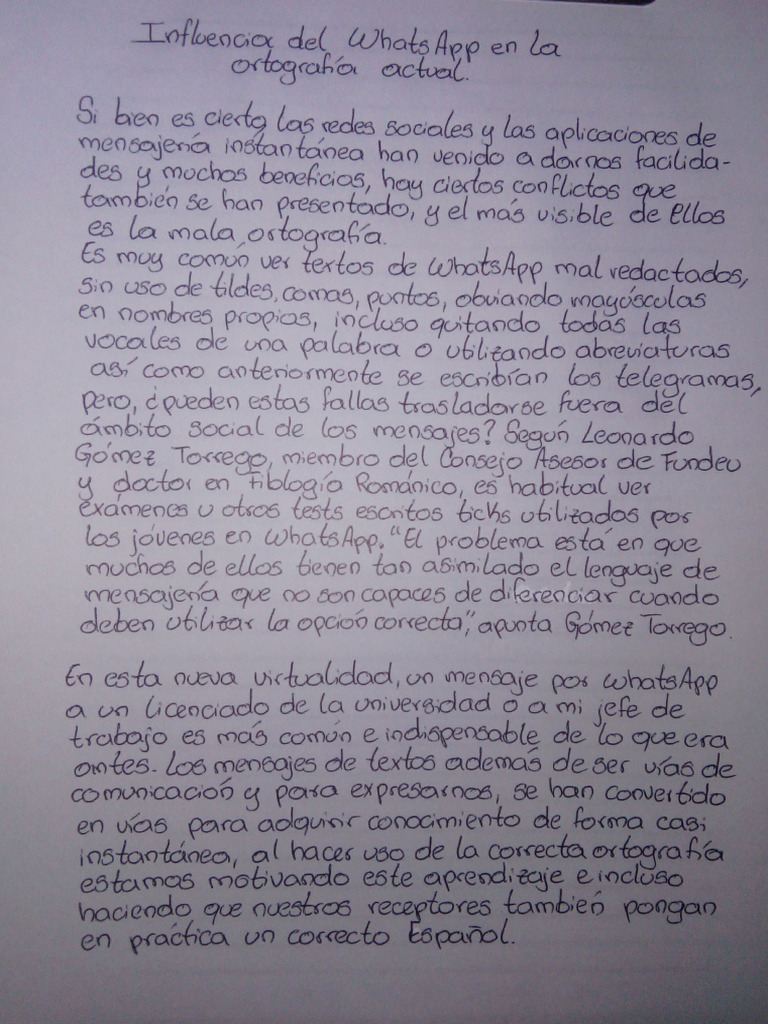 Influencia del WhatsApp en la
ortografía actual.
Si bien es cierto, las redes sociales y las aplicaciones de
mensajería instantánea han venido a darnos facilida-
des y muchos beneficios, hay ciertos conflictos que
también se han presentado, y el más visible de ellos
es la mala ortografía.
Es muy común ver textos de WhatsApp mal redactados,
sin uso de tildes, comas, puntos, obviando mayúsculas
en nombres propios, incluso quitando todas las
vocales de una palabra o utilizando abreviaturas
así como anteriormente se escribían los telegramas,
pero, ¿pueden estas fallas trasladarse fuera del
ámbito social de los mensajes? Según Leonardo
Gómez Torrego, miembro del Consejo Asesor de Fundeu
y doctor en Filología Románico, es habitual ver
exámenes u otros tests escritos ticks utilizados por
los jóvenes en WhatsApp. "El problema está en que
muchos de ellos tienen tan asimilado el lenguaje de
mensajería que no son capaces de diferenciar cuando
deben utilizar la opción correcta", apunta Gómez Torrego.
En esta nueva virtualidad, un mensaje por WhatsApp
a un licenciado de la universidad o a mi jefe de
trabajo es más común e indispensable de lo que era
antes. Los mensajes de textos además de ser vías de
comunicación y para expresarnos, se han convertido
en vías para adquirir conocimiento de forma casi
instantánea, al hacer uso de la correcta ortografía
estamos motivando este aprendizaje e incluso
haciendo que nuestros receptores también pongan
en práctica un correcto Español.